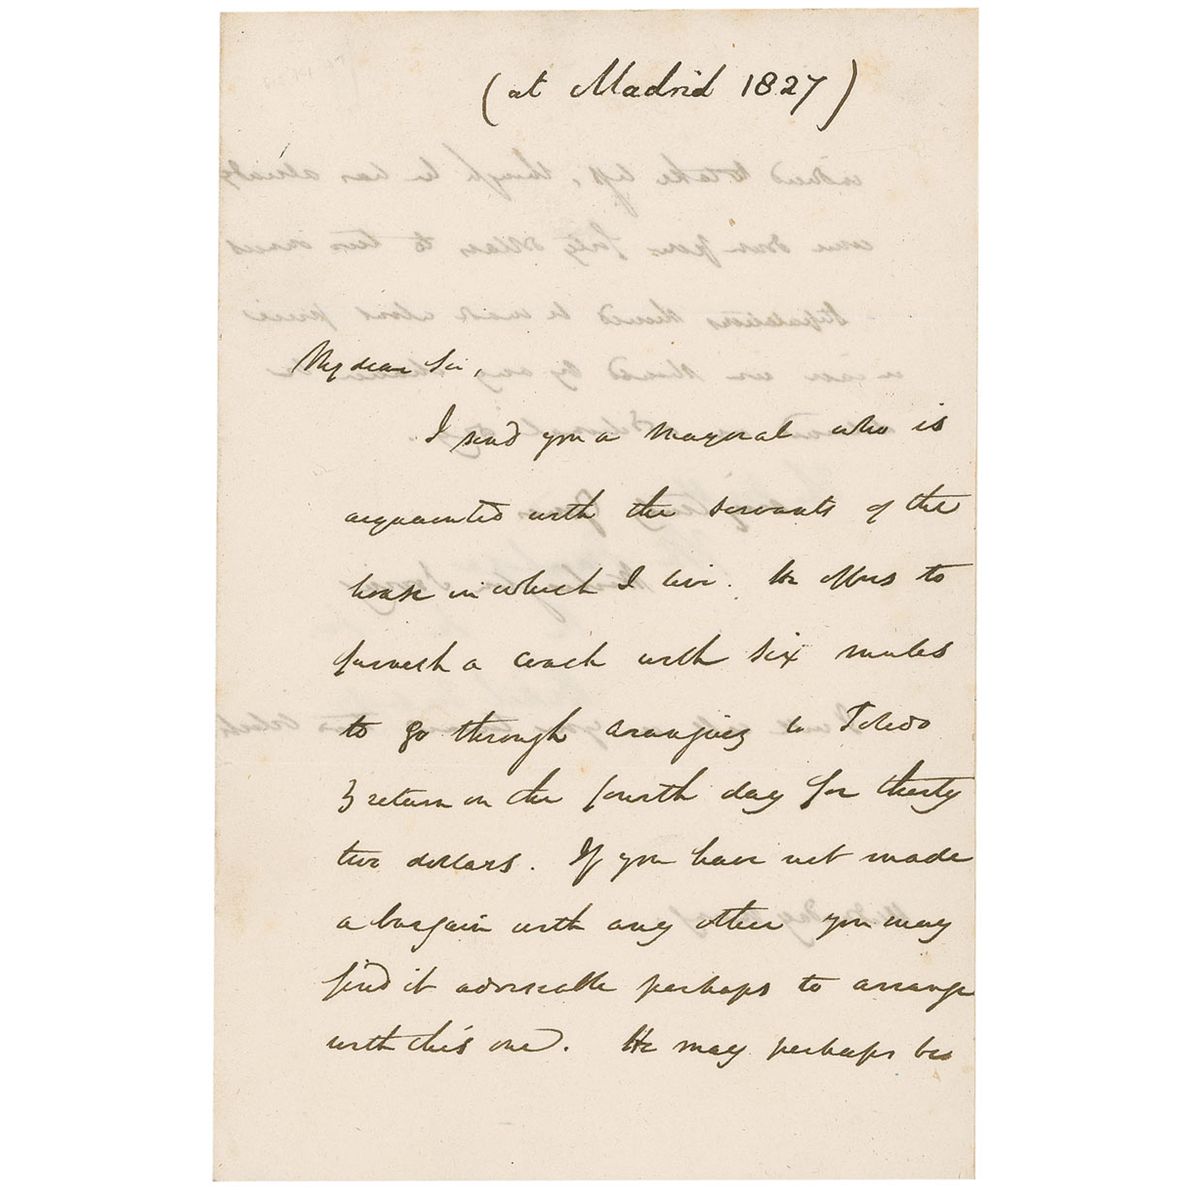 (at Madrid 1827)
My dear Sir,
I send you a Mayoral who is
acquainted with the servants of the
house in which I live. He offers to
furnish a coach with six mules
to go through Aranjuez to Toledo
& return on the fourth day for thirty
two dollars. If you have not made
a bargain with any other you may
find it adviseable perhaps to arrange
with this one. He may perhaps be